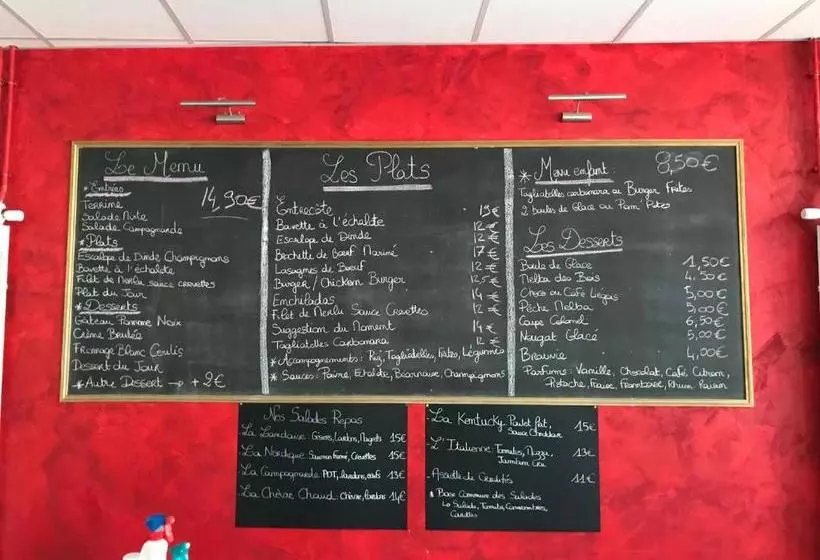 Le Menu
14,90€
* Entrées
Terrine
Salade Mixte
Salade Campagnarde
* Plats
Escalope de Dinde Champignons
Bavette à l'échalote
Filet de Merlu sauce crevettes
Plat du Jour
* Desserts
Gâteau Pomme Noix
Crème Brulée
Fromage Blanc Coulis
Dessert du Jour
* Autre Dessert → + 2€
Les Plats
Entrecôte 19€
Bavette à l'échalote 12€
Escalope de Dinde 12€
Brochette de Bœuf Mariné 17€
Lasagnes de Bœuf 12€
Burger / Chicken Burger 12,5€
Enchiladas 14€
Filet de Merlu Sauce Crevettes 12€
Suggestion du Moment 14€
Tagliatelles Carbonara 12€
* Accompagnements: Riz, Tagliatelles, Frites, Légumes
* Sauces: Poivre, Echalote, Bearnaise, Champignons
* Menu enfant: 8,50€
Tagliatelles carbonara ou Burger Frites
2 boules de Glace ou Pom'Potes
Les Desserts
Boule de Glace 1,50€
Melba des Bois 4.50€
Choco ou Café Liégeois 5,00€
Pêche Melba 5,00€
Coupe Colonel 6,50€
Nougat Glacé 5,00€
Brownie 4,00€
Parfums: Vanille, Chocolat, Café, Citron,
Pistache, Fraise, Framboise, Rhum Raisin
Nos Salades Repas
- La Landaise: Gésiers, Lardons, Magrets 15€
- La Nordique Saumon Fumé, Crevettes 15€
- La Campagnarde PDT, lardons, oeufs 13€
- La Chèvre Chaud: Chèvre, lardons 14€
- La Kentucky: Poulet Pané, 15€
Sauce Cheddar
- L'Italienne: Tomates, Mozza, 13€
Jambon cru
- Assiette de Crudités 11€
* Base Commune des Salades
Salade, Tomate, Concombres,
Carottes